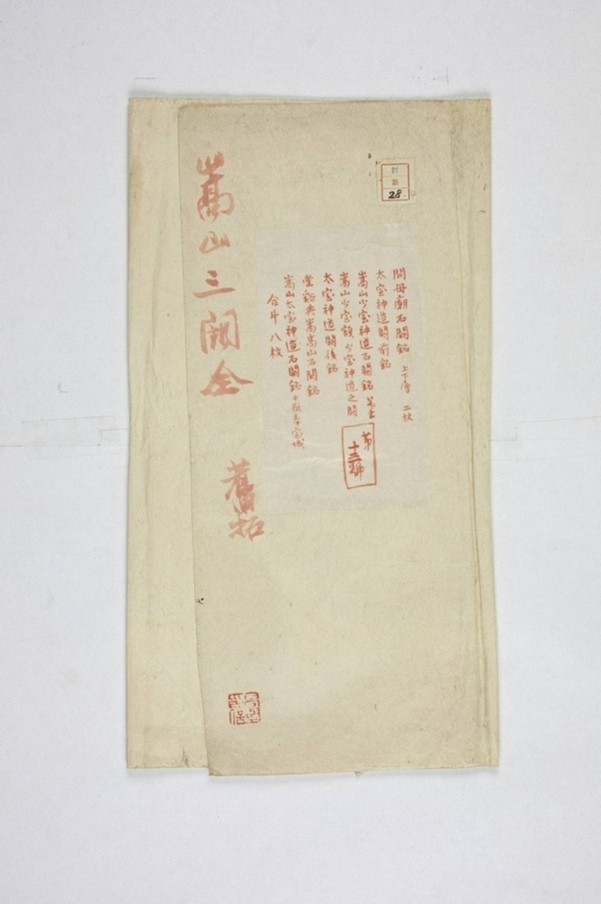 嵩山三闕全
舊拓
28
開母廟石闕銘 上下層 二枚
太室神道闕前銘
嵩山少室神道石闕銘
嵩山少室額 少室神道之闕
太室神道闕後銘
堂谿典嵩高山石闕銘
嵩山太室神道石闕銘
合斗 八枚
第十三号